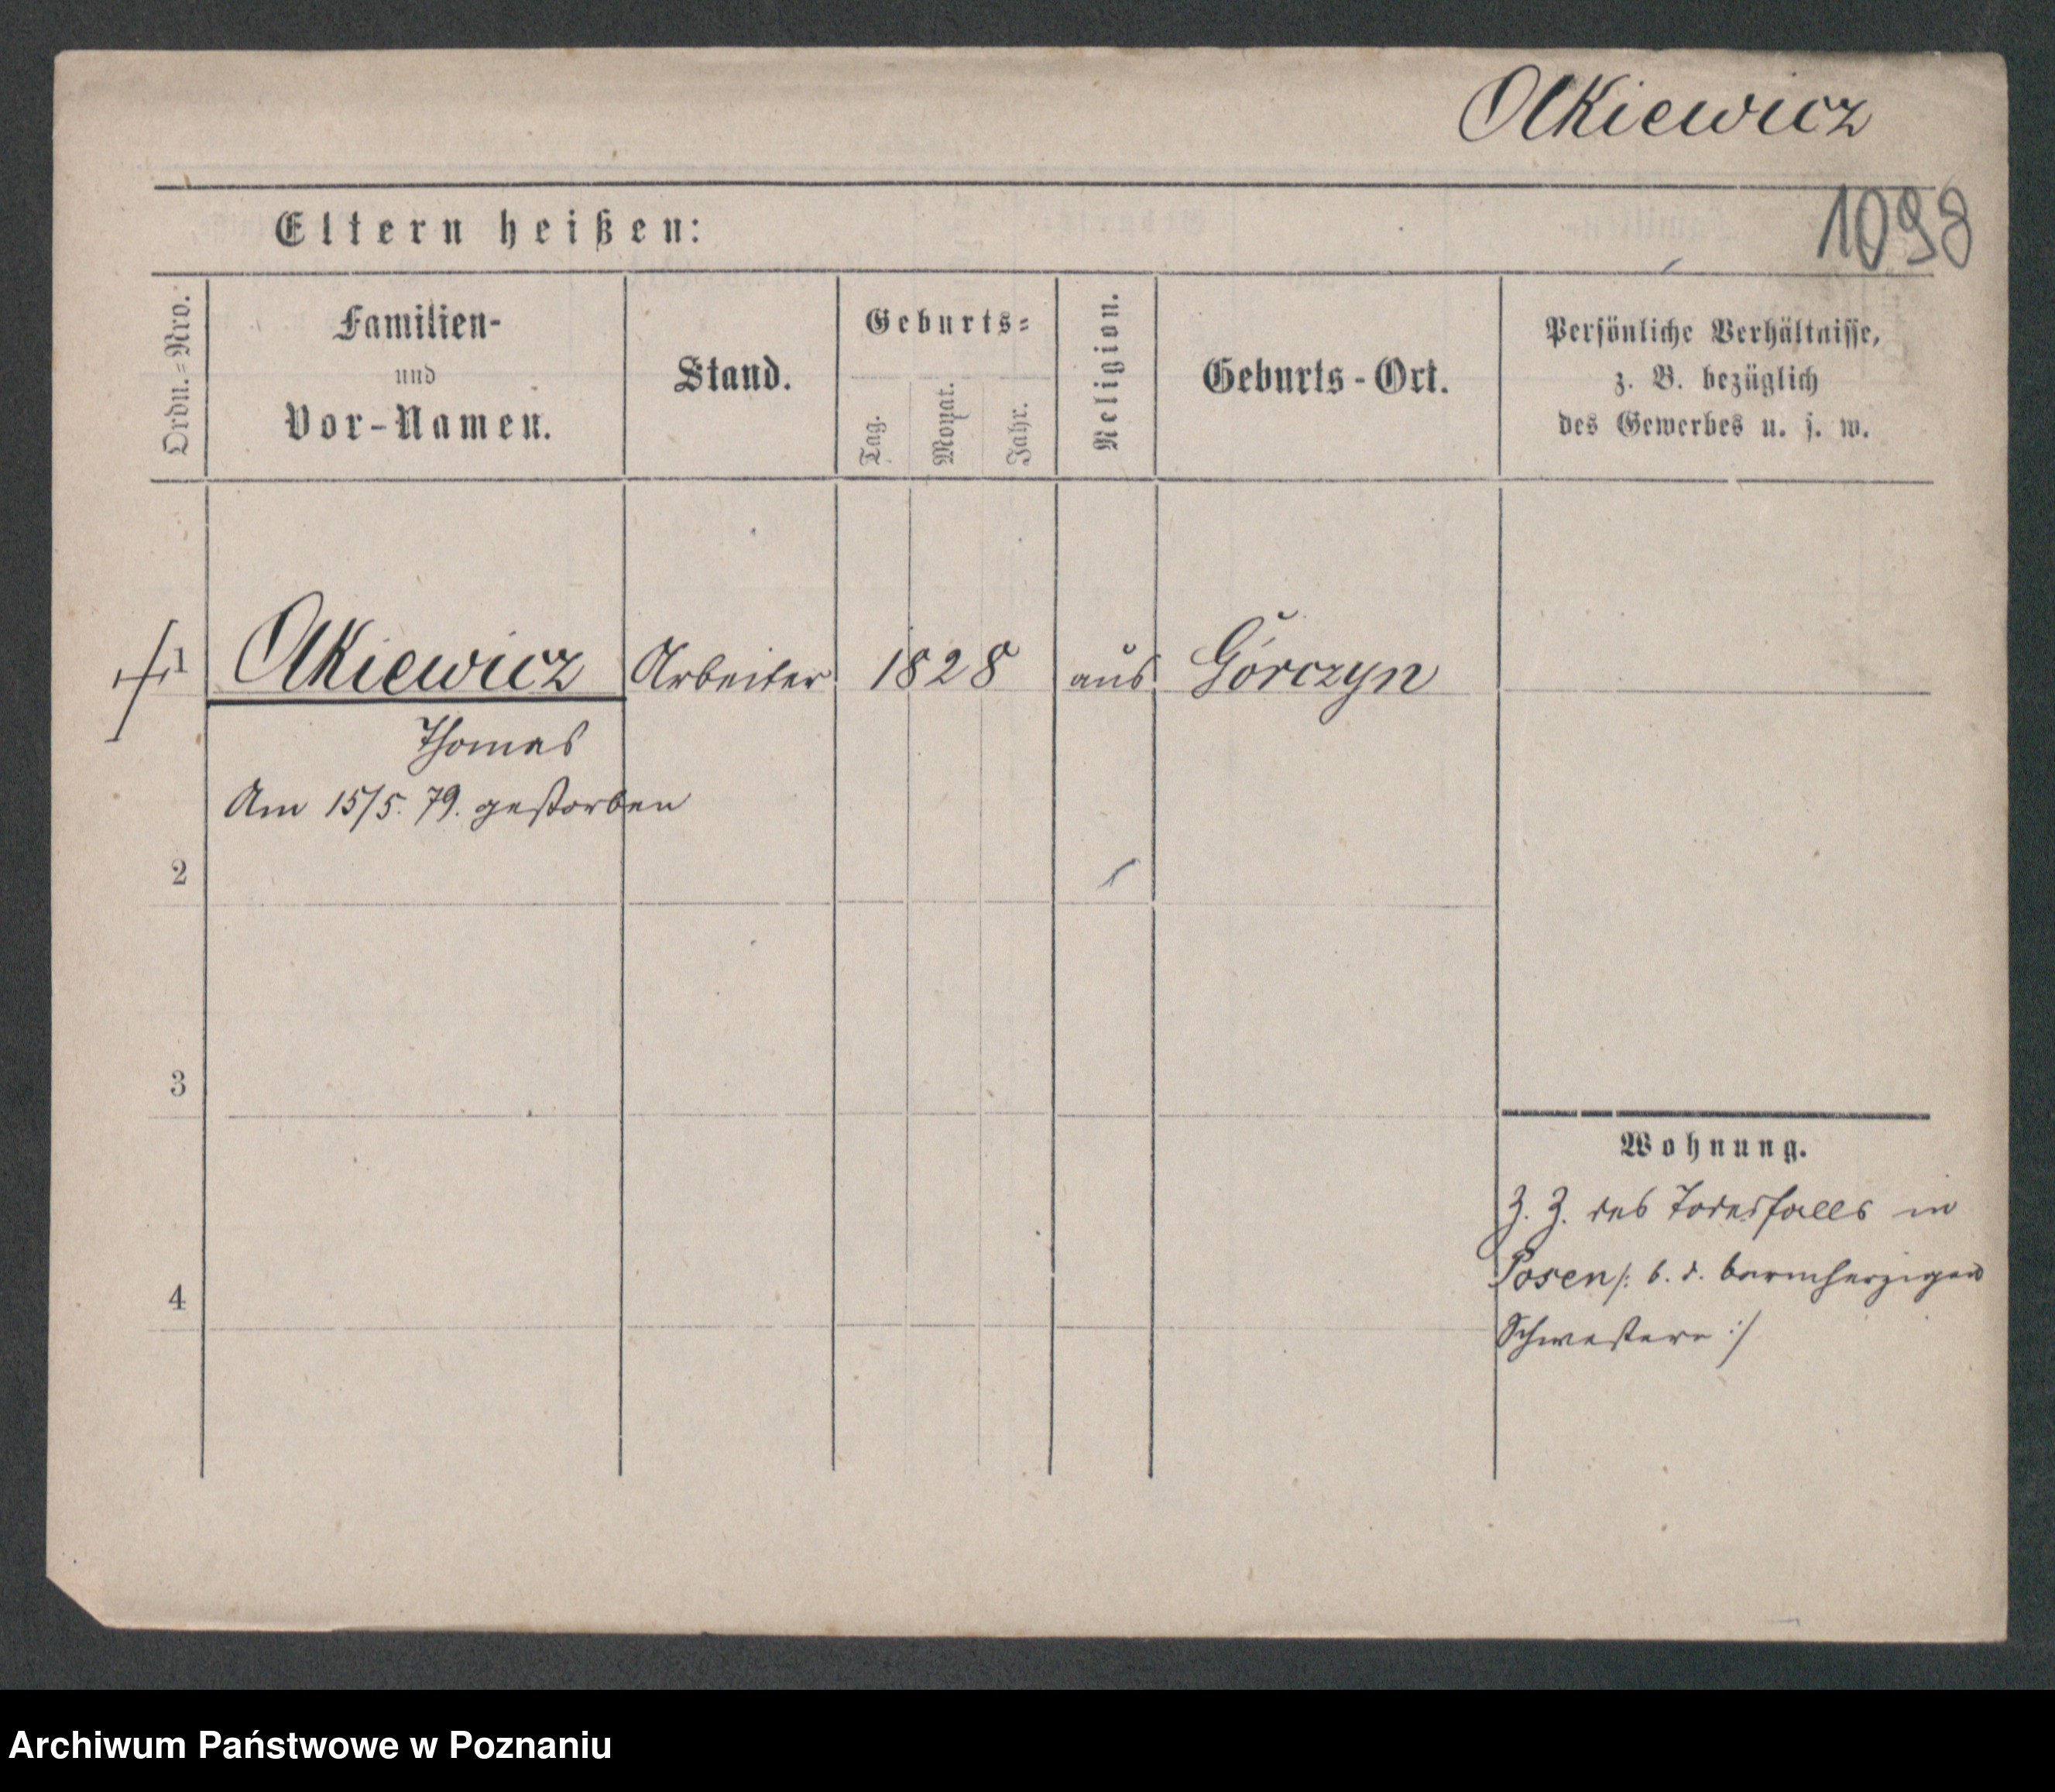 Olkiewicz
1098
Eltern heißen:
Ordn.=Nro.
Familien-
und
Vor-Namen.
Stand.
Geburts=
Tag.
Monat.
Jahr.
Religion.
Geburts-Ort.
Persönliche Verhältnisse,
z. B. bezüglich
des Gewerbes u. s. w.
1 Olkiewicz Arbeiter 1828 aus Górczyn
Thomas
Am 15/5. 79. gestorben
2
3
4
Wohnung.
Z. Z. des Todesfalls in
Posen /: b. d. barmherzigen
Schwestern :/
Archiwum Państwowe w Poznaniu